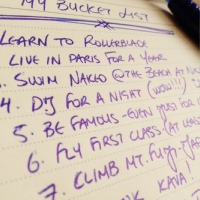 MY BUCKET LIST
LEARN TO ROLLERBLADE
LIVE IN PARIS FOR A YEAR
SWIM NAKED @ THE BEACH AT
4. DJ FOR A NIGHT (WOW!!!)
5. BE FAMOUS - EVEN JUST FOR
6. FLY FIRST CLASS (AT LEAST
7. CLIMB MT. FUJI -
KAVA!